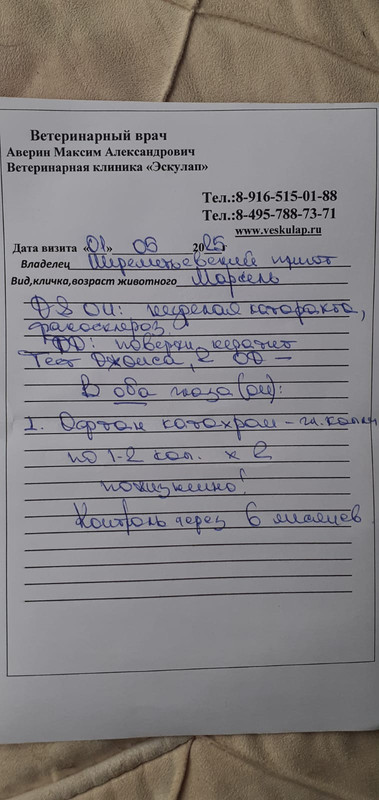 Ветеринарный врач
Аверин Максим Александрович
Ветеринарная клиника «Эскулап»
Тел.:8-916-515-01-88
Тел.:8-495-788-73-71
www.veskulap.ru
Дата визита «01» 06 2025
Владелец Шереметьевский приют
Вид,кличка,возраст животного Марсель
DS OU: незрелая катаракта,
факосклероз.
OD: поверхн. кератит
Тест Джонса, 2 OD —
В оба глаза (OU):
1. Офтан катахром – гл. капли
по 1-2 кап. x 2
пожизненно!
Контроль через 6 месяцев